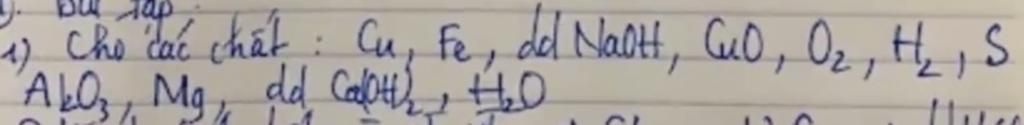 1) Cho các chất : Cu, Fe, dd NaOH, CuO, O₂, H₂, S
Al₂O₃, Mg, dd Ca(OH)₂, H₂O